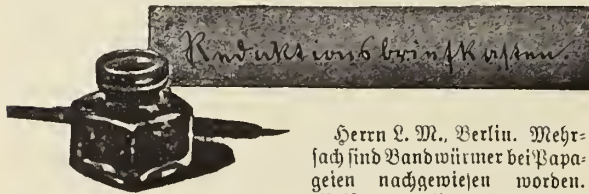 Redaktionsbriefkasten.
Herrn L. M., Berlin. Mehr-
fach sind Bandwürmer bei Papa-
geien nachgewiesen worden.